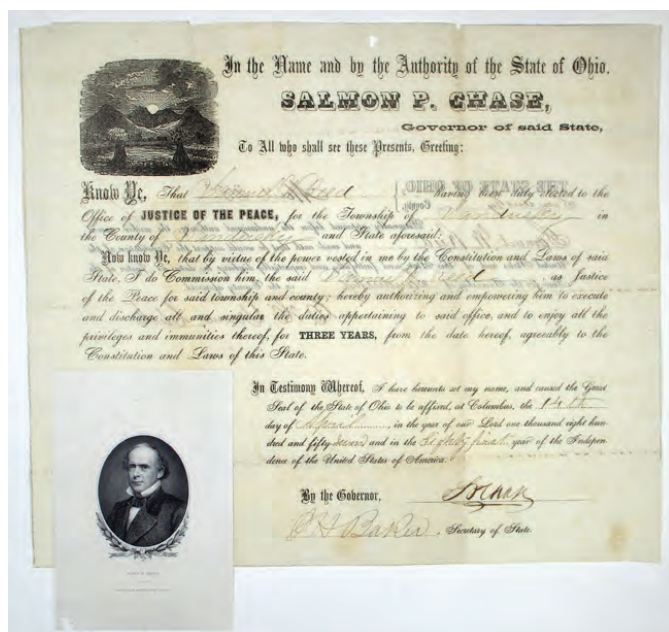 In the Name and by the Authority of the State of Ohio.
SALMON P. CHASE,
Governor of said State,
To All who shall see these Presents, Greeting:
Know Ye, That Reed having been duly elected to the
Office of JUSTICE OF THE PEACE, for the Township of in
the County of and State aforesaid:
Now know Ye, that by virtue of the power vested in me by the Constitution and Laws of said
State, I do Commission him, the said Reed as Justice
of the Peace for said township and county; hereby authorizing and empowering him to execute
and discharge all and singular the duties appertaining to said office, and to enjoy all the
privileges and immunities thereof, for THREE YEARS, from the date hereof, agreeably to the
Constitution and Laws of this State.
In Testimony Whereof, I have hereunto set my name, and caused the Great
Seal of the State of Ohio to be affixed, at Columbus, the 14th
day of April in the year of our Lord one thousand eight hun-
dred and fifty seven and in the Eighty first year of the Indepen-
dence of the United States of America.
By the Governor, S P Chase
Baker, Secretary of State.